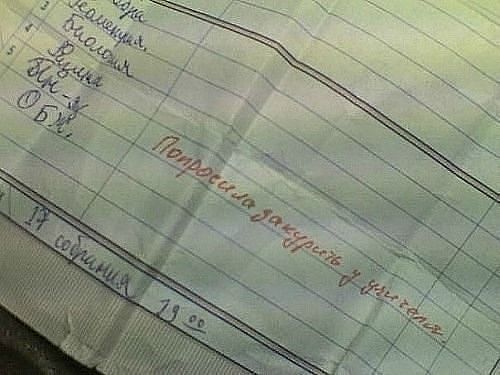 3 Геометрия
4 Биология
5 Физика
ОБЖ
Попросила закурить у учителя.
17 собрания 19 00